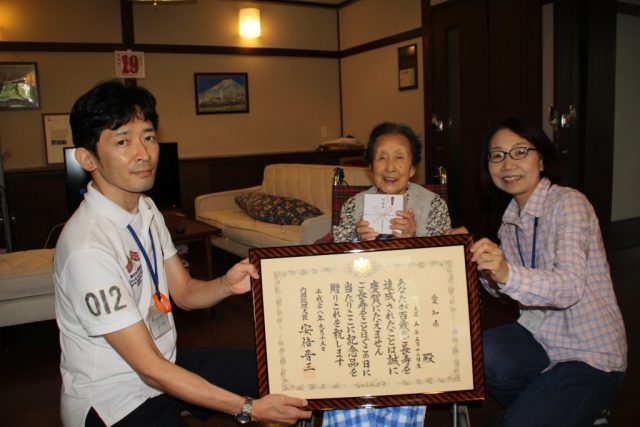 愛知県
殿
大正五年五月十二日生
あなたが百歳のご長寿を
達成されたことは誠に
慶賀にたえません
ご長寿をことほぎこの日に
当たりここに記念品を
贈りこれを祝します
平成二十八年九月十五日
内閣総理大臣 安倍晋三
19
012